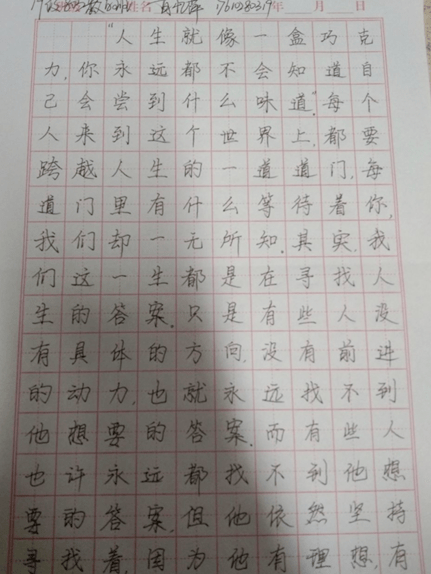 姓名 年 月 日
“人生就像一盒巧克
力,你永远都不会知道自
己会尝到什么味道”,每个
人来到这个世界上,都要
跨越人生的一道道门,每
道门里有什么等待着你,
我们却一无所知.其实,我
们这一生都是在寻找人
生的答案.只是有些人没
有具体的方向,没有前进
的动力,也就永远找不到
他想要的答案.而有些人
也许永远都找不到他想
要的答案,但他依然坚持
寻找着,因为他有理想,有